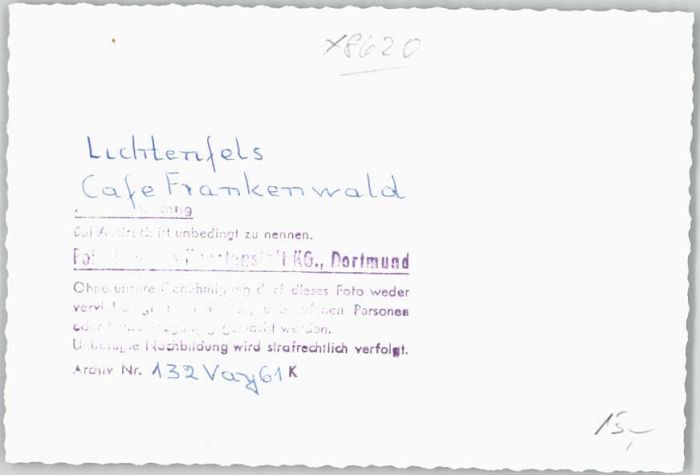 X8620
Lichtenfels
Cafe Frankenwald
Bei Abdruck ist unbedingt zu nennen.
KG., Dortmund
Ohne unsere Genehmigung darf dieses Foto weder
Personen
oder werden.
Unbefugte Nachbildung wird strafrechtlich verfolgt.
Archiv Nr. 132 Vay 61 K
15,-